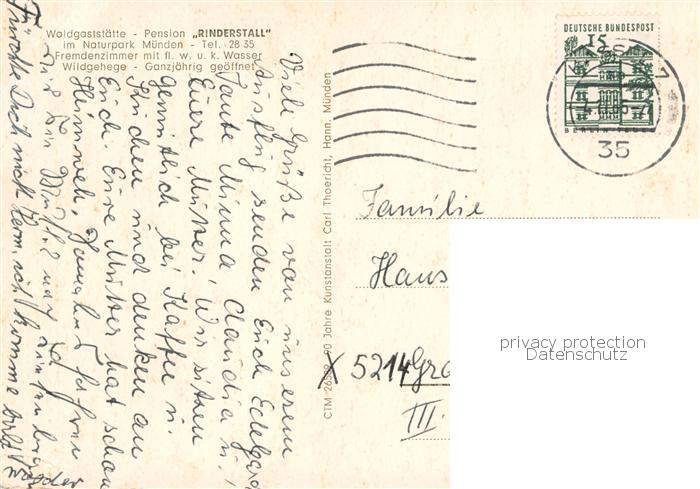 Waldgaststätte - Pension „RINDERSTALL"
im Naturpark Münden - Tel. 28 35
Fremdenzimmer mit fl. w. u. k. Wasser
Wildgehege - Ganzjährig geöffnet
Viele Grüße von unserem
Ausflug senden Euch Edelgard
Tante Minna Claudia u.
Euere Mutter! Wir sitzen
gemütlich bei Kaffee u.
Kuchen und denken an
Euch. Eure Mutter hat schon
Heimweh,
Fürchte Dich nicht Hermi, ich komme bald
CTM 26599 90 Jahre Kunstanstalt Carl Thoericht, Hann. Münden
DEUTSCHE BUNDESPOST
15
35
Familie
Hans
X 5214 Gro
III.
privacy protection
Datenschutz